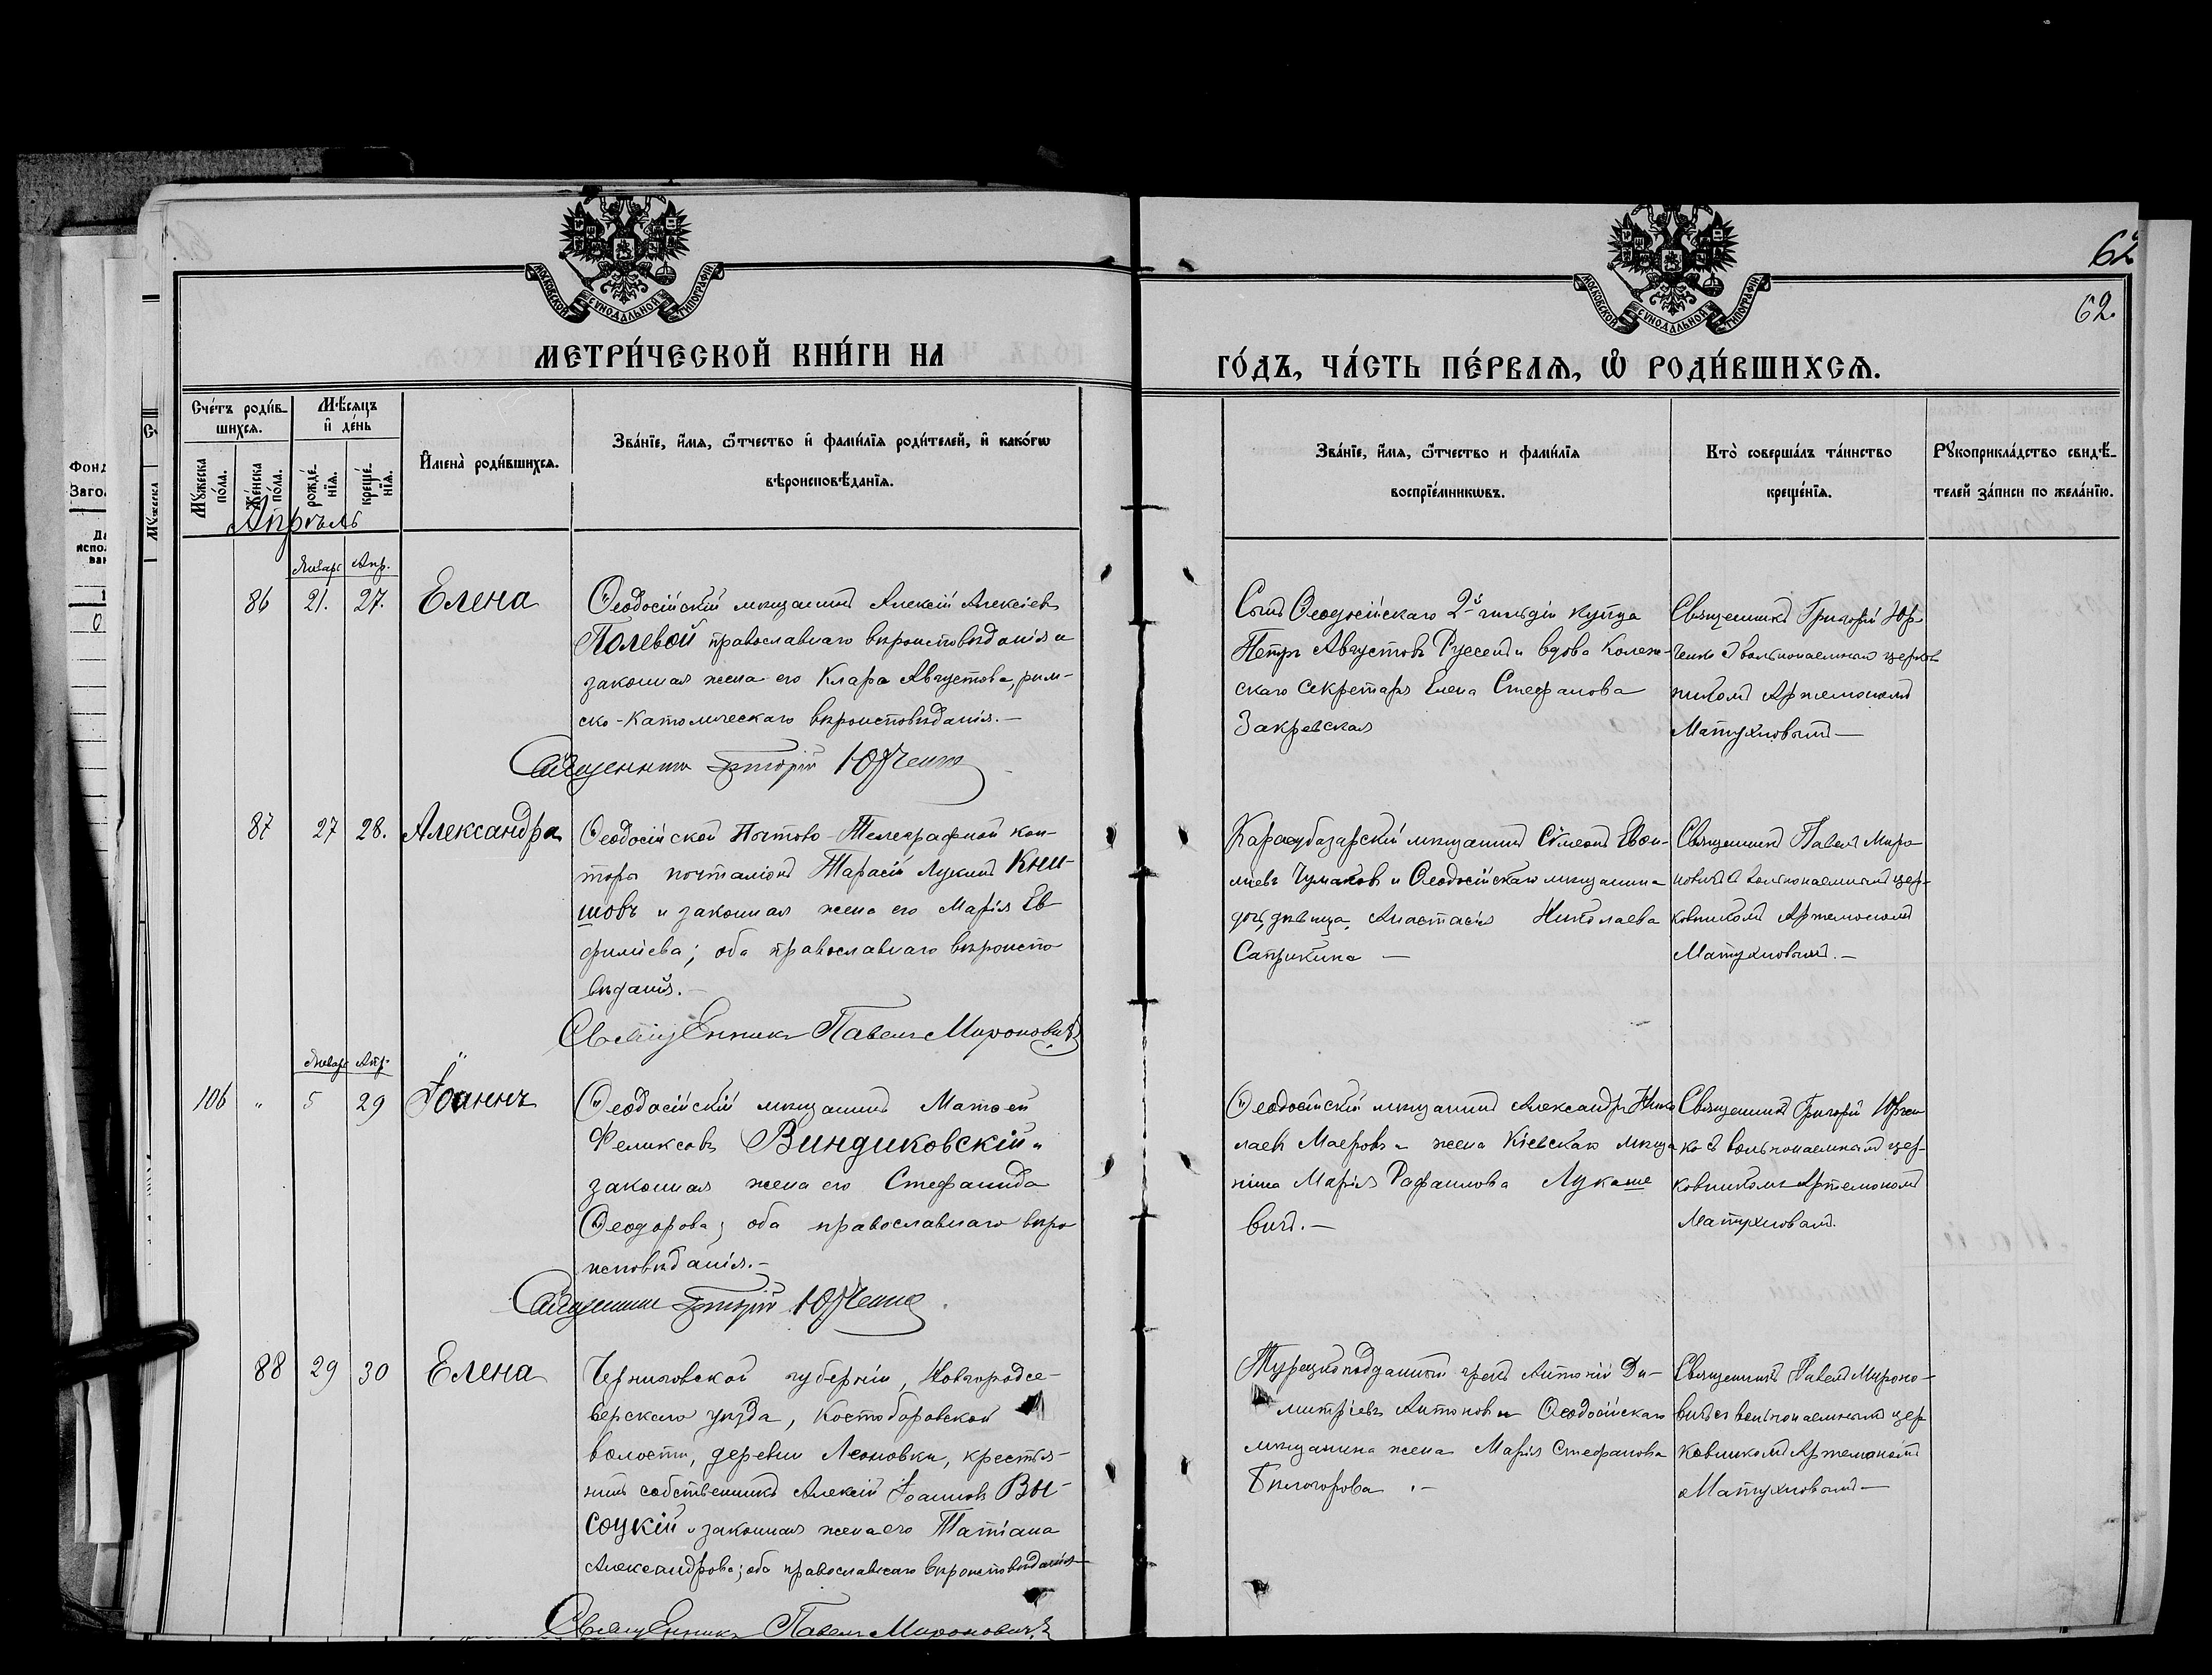 62
62.
МОСКОВСКОЙ СѴНОДАЛЬНОЙ ТИПОГРАФІИ
МОСКОВСКОЙ СѴНОДАЛЬНОЙ ТИПОГРАФІИ
МЕТРИ́ЧЕСКОЙ КНИ́ГИ НА
ГО́ДЪ, ЧА́СТЬ ПЕ́РВАЯ, Ѿ РОДИ́ВШИХСЯ.
Сче́тъ роди́в-
шихся.
Мѣ́сяцъ
и҆ де́нь
Мꙋ́жеска
по́ла.
Же́нска
по́ла.
рожде́-
нїѧ.
креще́-
нїѧ.
И҆мена̀ роди́вшихся.
Зва́нїе, и҆́мя, ѻ҆́тчество и҆ фами́лїя роди́телей, и҆ како́гѡ
вѣроисповѣ́данїя.
Зва́нїе, и҆́мя, ѻ҆́тчество и фами́лїя
воспрїе́мникѡвъ.
Кто̀ соверша́лъ та́инство
креще́нїя.
Рꙋкоприкла́дство свидѣ́-
телей за́писи по жела́нїю.
Апрѣль
Январь Апр.
86 21. 27. Елена
Ѳеодосійскій мѣщанинъ Алексій Алексіевъ
Полевой православнаго вѣроисповѣданія и
законная жена его Клара Августова, рим-
ско-католическаго вѣроисповѣданія.—
Священникъ Григорій Юрченко
Сынъ Ѳеодосійскаго 2й гильдіи купца
Петръ Августовъ Руссенъ и вдова Коллеж-
скаго Секретаря Елена Стефанова
Закревская
Священникъ Григорій Юр-
ченко съ вольнонаемнымъ церков
никомъ Артемономъ
Матухновымъ—
87 27 28. Александра
Ѳеодосійской Почтово-Телеграфной кон-
торы почталіонъ Тарасій Лукинъ Кни-
шовъ и законная жена его Марія Ев
фиміева; оба православнаго вѣроиспо
вѣданія.—
Священникъ Павелъ Мироновичъ
Карасубазарскій мѣщанинъ Сѵмеонъ
Чумаковъ и Ѳеодосійскаго мѣщанина
дочь, дѣвица, Анастасія Николаева
Сапрыкина —
Священникъ Павелъ Миро
новичъ съ вольнонаемнымъ цер-
ковникомъ Артемономъ
Матухновымъ.—
Январь Апр.
106 " 5 29 Іоаннъ
Ѳеодосійскій мѣщанинъ Матѳей
Феликсовъ Виндиковскій и
законная жена его Стефанида
Ѳеодорова; оба православнаго вѣро
исповѣданія.—
Священникъ Григорій Юрченко
Ѳеодосійскій мѣщанинъ Александръ Нико
лаевъ Маеровъ и жена Кіевскаго мѣща
нина Марія Рафаилова Лукаше
вичъ.—
Священникъ Григорій Юрчен
ко съ вольнонаемнымъ цер-
ковникомъ Артемономъ
Матухновымъ.
88 29 30 Елена
Черниговской губерніи, Новгородсе-
верскаго уѣзда, Костобобровской
волости, деревни Леоновки, крестья-
нинъ собственникъ Алексій Іоанновъ Вы-
соцкій и законная жена его Татіана
Александрова; оба православнаго вѣроисповѣданія
Священникъ Павелъ Мироновичъ
Турецкоподданный грекъ Антоній Ди-
митріевъ Антоновъ и Ѳеодосійскаго
мѣщанина жена Марія Стефанова
Бѣлогорова .—
Священникъ Павелъ Мироно-
вичъ съ вольнонаемнымъ цер
ковникомъ Артемономъ
Матухновымъ—